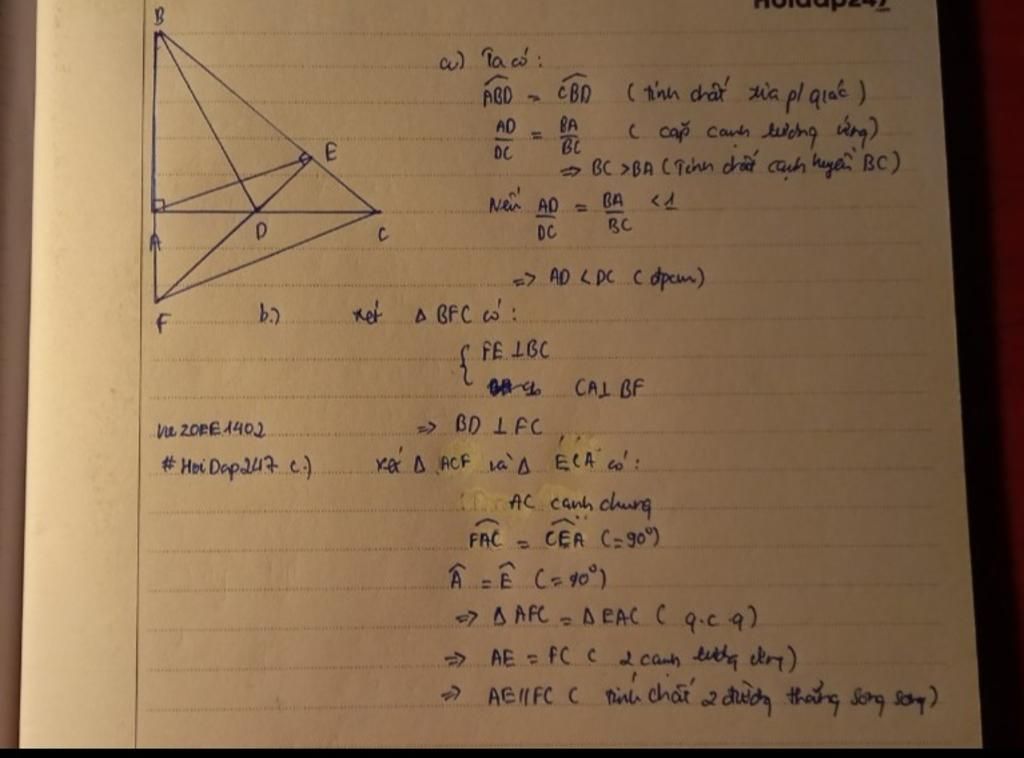 Hoidap247
B
E
A
D
C
F
a) Ta có :
ABD = CBD ( tính chất tia p/ giác )
AD/DC = BA/BC ( cặp cạnh tương ứng)
=> BC > BA ( Tính chất cạnh huyền BC )
Nên AD/DC = BA/BC < 1
=> AD < DC ( đpcm)
b.) xét Δ BFC có :
{ FE ⊥ BC
CA ⊥ BF
=> BD ⊥ FC
# HoiDap247 c.) xét Δ ACF và Δ ECA có :
AC cạnh chung
FAC = CEA (=90°)
A = E (=90°)
=> Δ AFC = Δ EAC ( g.c.g)
=> AE = FC ( 2 cạnh tương ứng)
=> AE // FC ( tính chất 2 đường thẳng song song)